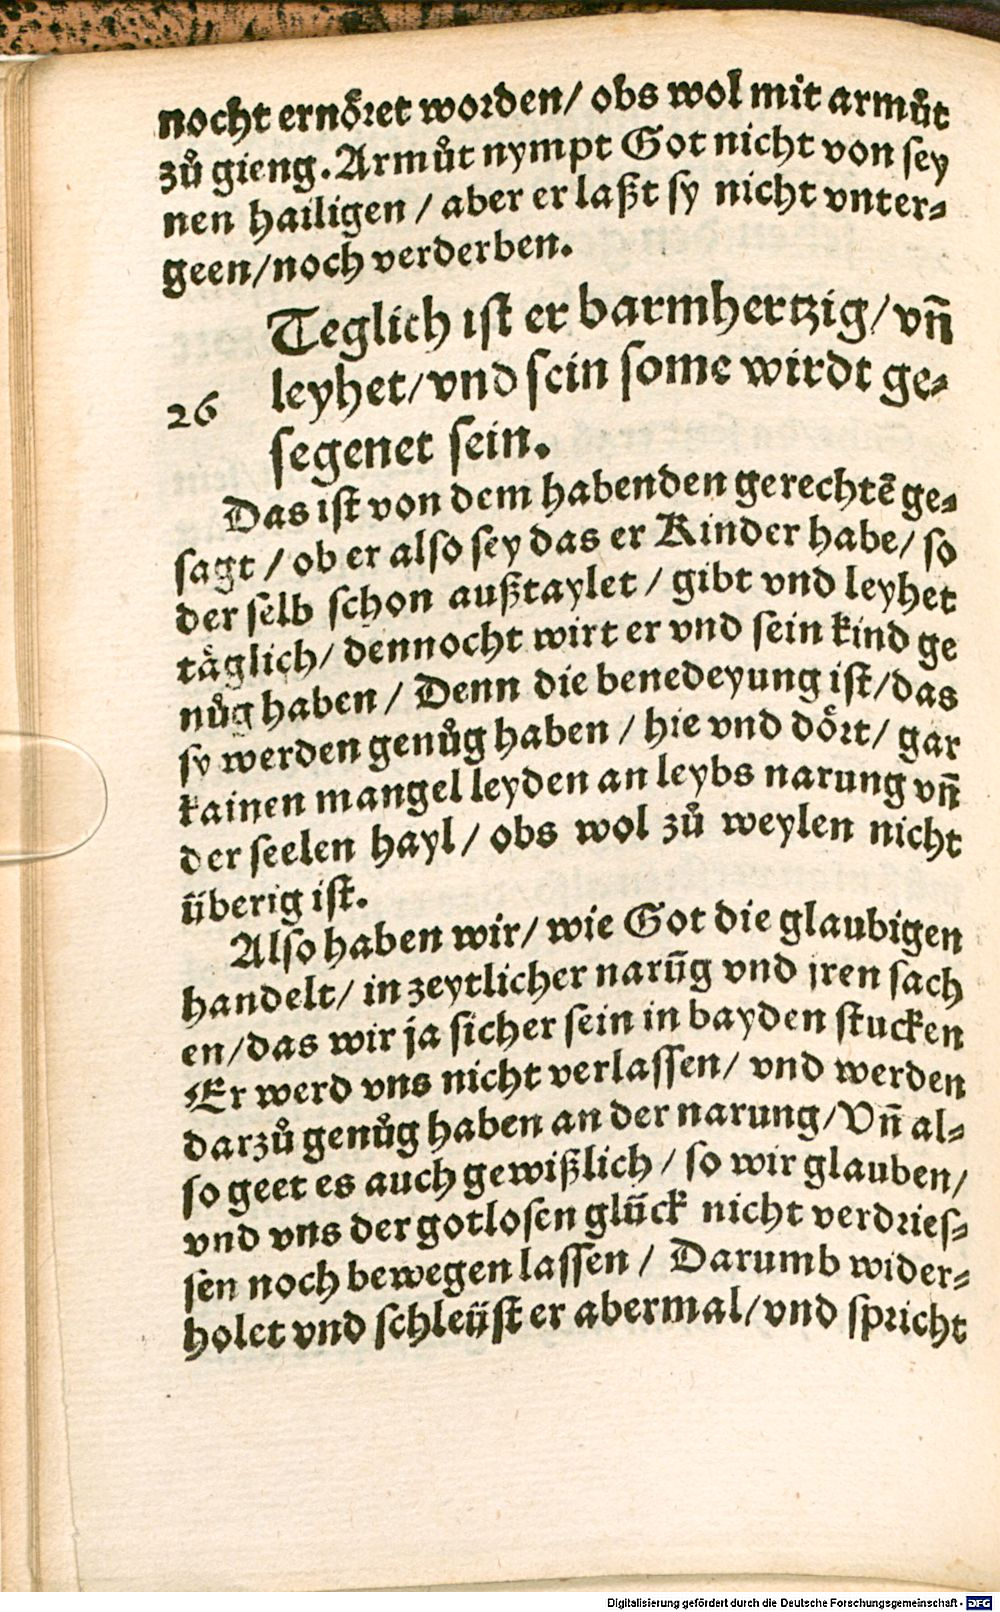 nocht ernöret worden/ obs wol mit armůt
zů gieng. Armůt nympt Got nicht von sey
nen hailigen / aber er laßt sy nicht vnter⸗
geen/noch verderben.
Teglich ist er barmhertzig/ vn̄
leyhet/ vnd sein some wirdt ge⸗
26
segenet sein.
Das ist von dem habenden gerechtē ge⸗
sagt / ob er also sey das er Kinder habe/ so
der selb schon außtaylet / gibt vnd leyhet
täglich/ dennocht wirt er vnd sein kind ge
nůg haben / Denn die benedeyung ist/das
sy werden genůg haben / hie vnd dört/ gar
kainen mangel leyden an leybs narung vn̄
der seelen hayl / obs wol zů weylen nicht
überig ist.
Also haben wir/ wie Got die glaubigen
handelt/ in zeytlicher narūg vnd jren sach
en/das wir ja sicher sein in bayden stucken
Er werd vns nicht verlassen/ vnd werden
darzů genůg haben an der narung/Vn̄ al⸗
so geet es auch gewißlich / so wir glauben/
vnd vns der gotlosen glück nicht verdries⸗
sen noch bewegen lassen / Darumb wider⸗
holet vnd schleüst er abermal/vnd spricht
Digitalisierung gefördert durch die Deutsche Forschungsgemeinschaft - DFG